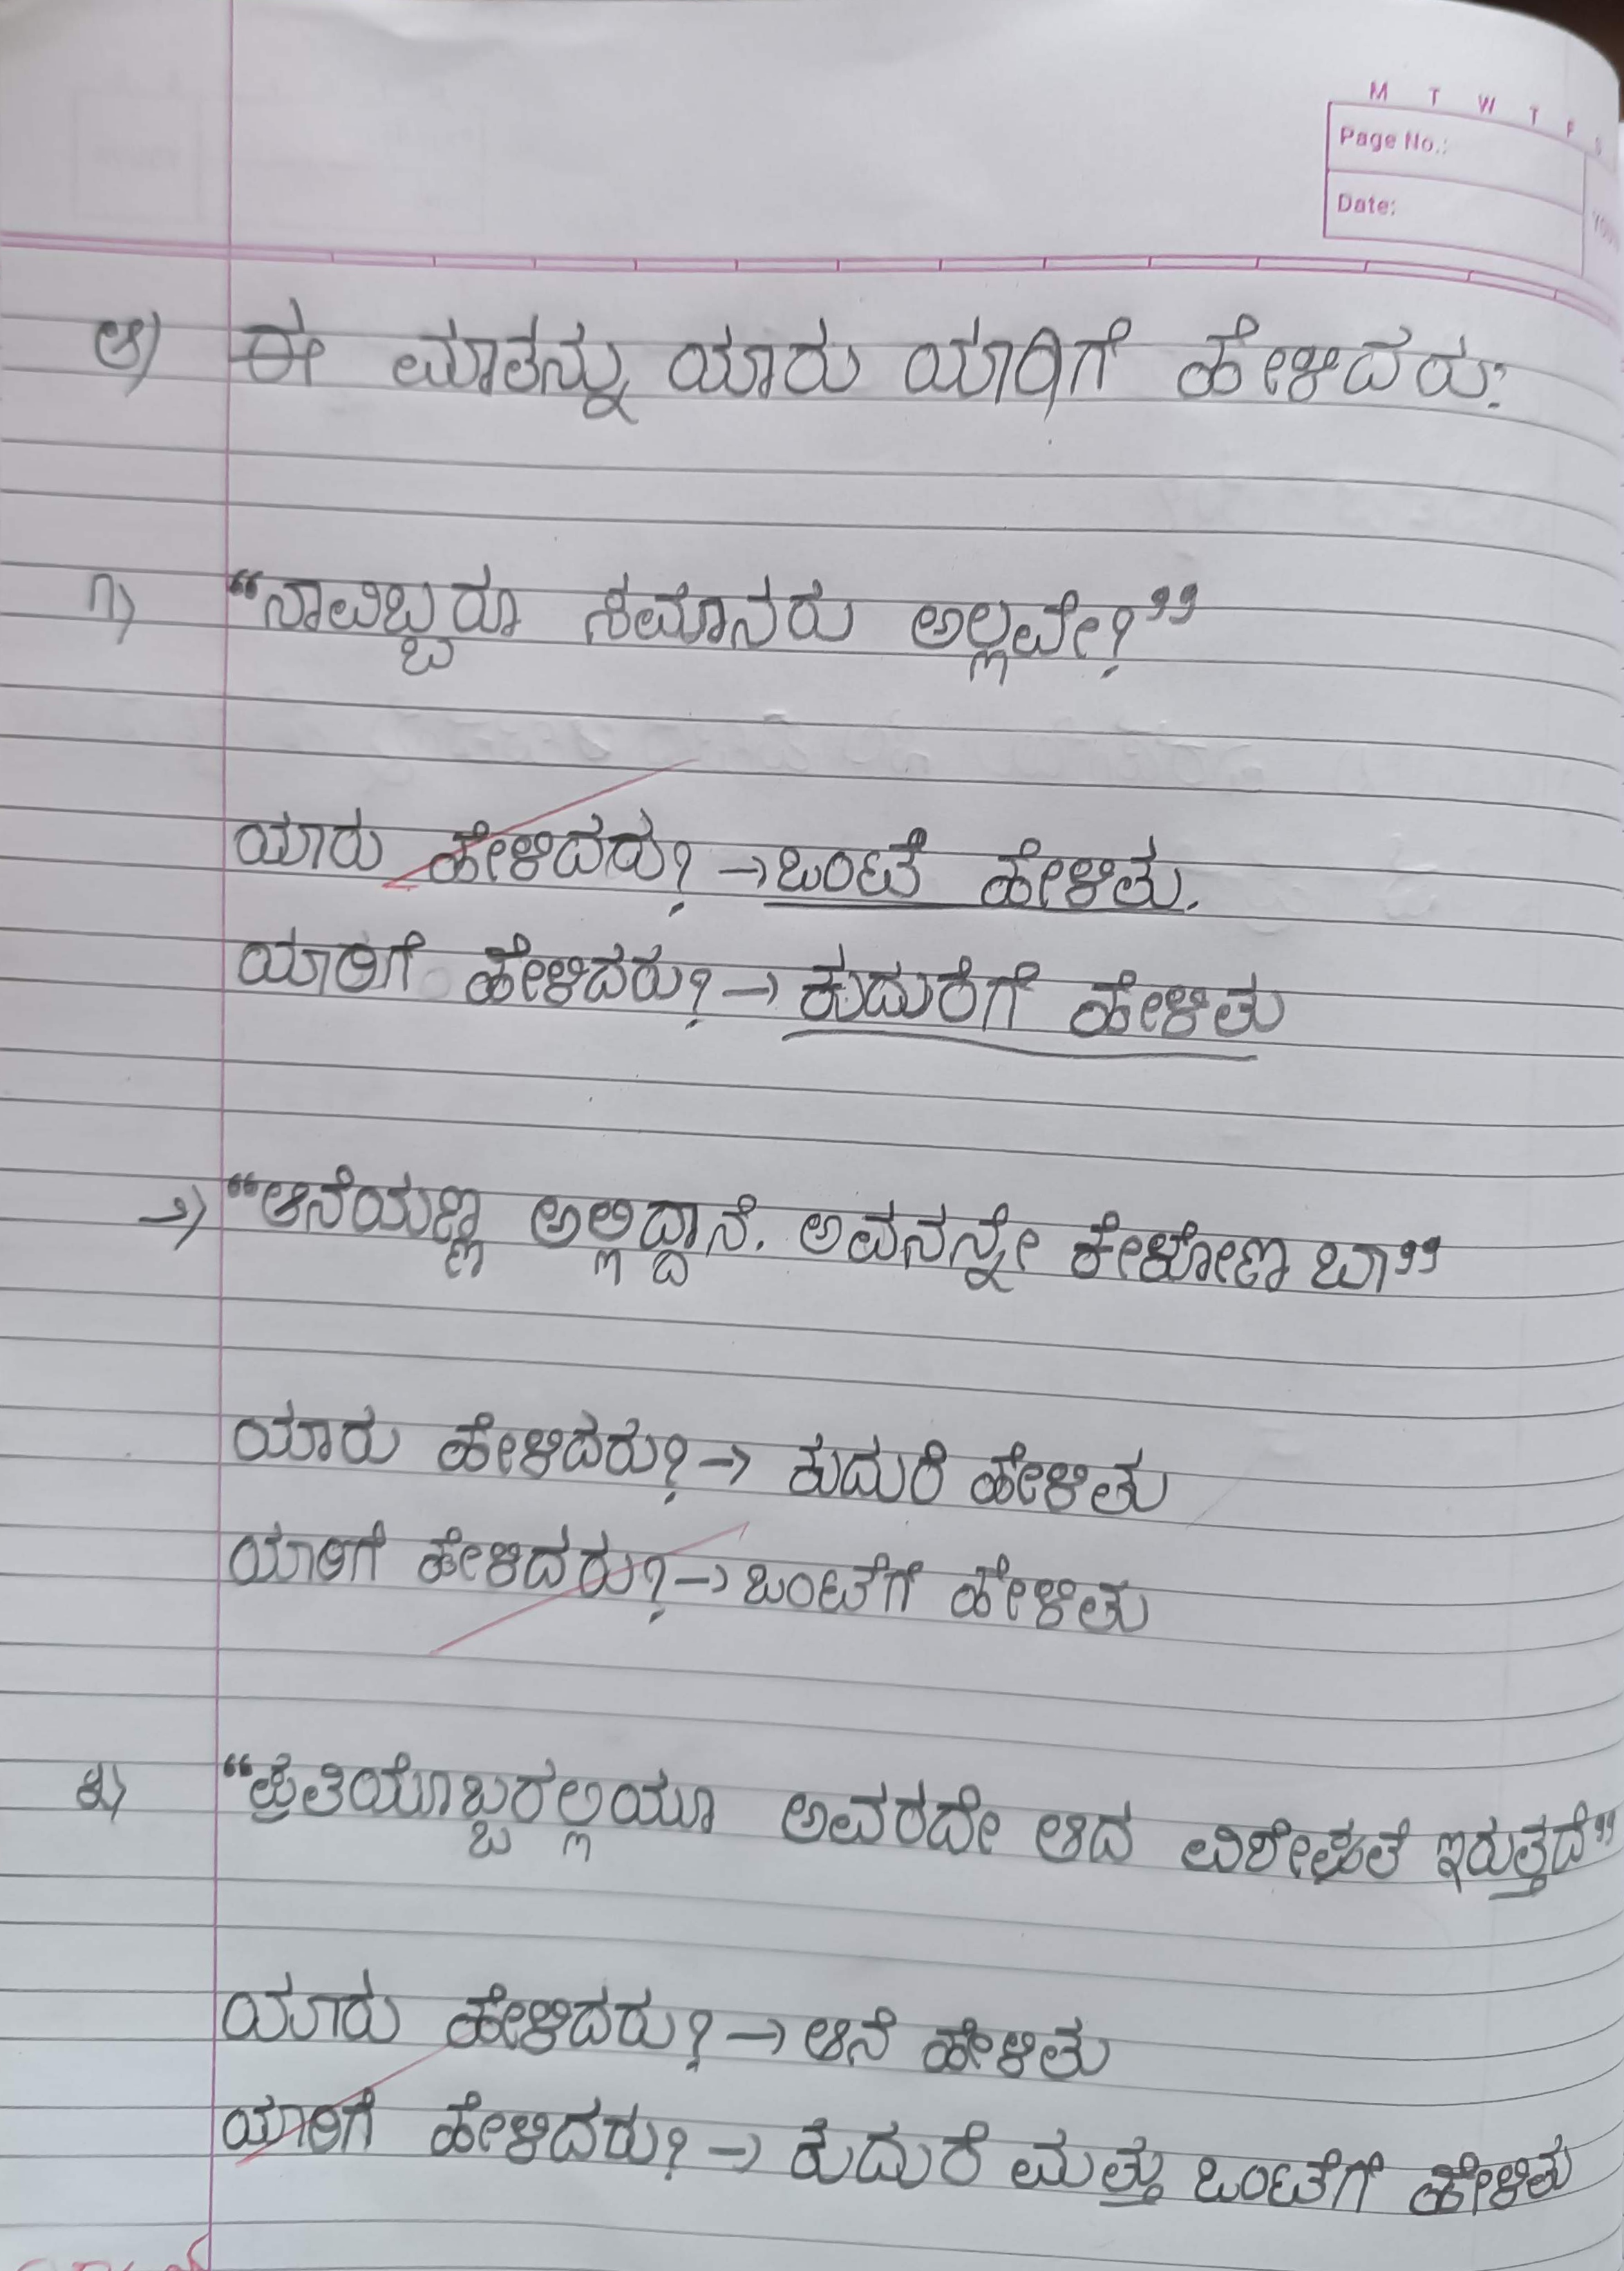 M T W T F S
Page No.:
Date:
ಆ) ಈ ಮಾತನ್ನು ಯಾರು ಯಾರಿಗೆ ಹೇಳಿದರು:
೧) “ನಾವಿಬ್ಬರೂ ಸಮಾನರು ಅಲ್ಲವೇ?”
ಯಾರು ಹೇಳಿದರು? → ಒಂಟೆ ಹೇಳಿತು.
ಯಾರಿಗೆ ಹೇಳಿದರು? → ಕುದುರೆಗೆ ಹೇಳಿತು
೨) “ಆನೆಯಣ್ಣ ಅಲ್ಲಿದ್ದಾನೆ. ಅವನನ್ನೇ ಕೇಳೋಣ ಬಾ”
ಯಾರು ಹೇಳಿದರು? → ಕುದುರೆ ಹೇಳಿತು
ಯಾರಿಗೆ ಹೇಳಿದರು? → ಒಂಟೆಗೆ ಹೇಳಿತು
೩) “ಪ್ರತಿಯೊಬ್ಬರಲ್ಲಿಯೂ ಅವರದೇ ಆದ ವಿಶೇಷತೆ ಇರುತ್ತದೆ”
ಯಾರು ಹೇಳಿದರು? → ಆನೆ ಹೇಳಿತು
ಯಾರಿಗೆ ಹೇಳಿದರು? → ಕುದುರೆ ಮತ್ತು ಒಂಟೆಗೆ ಹೇಳಿತು